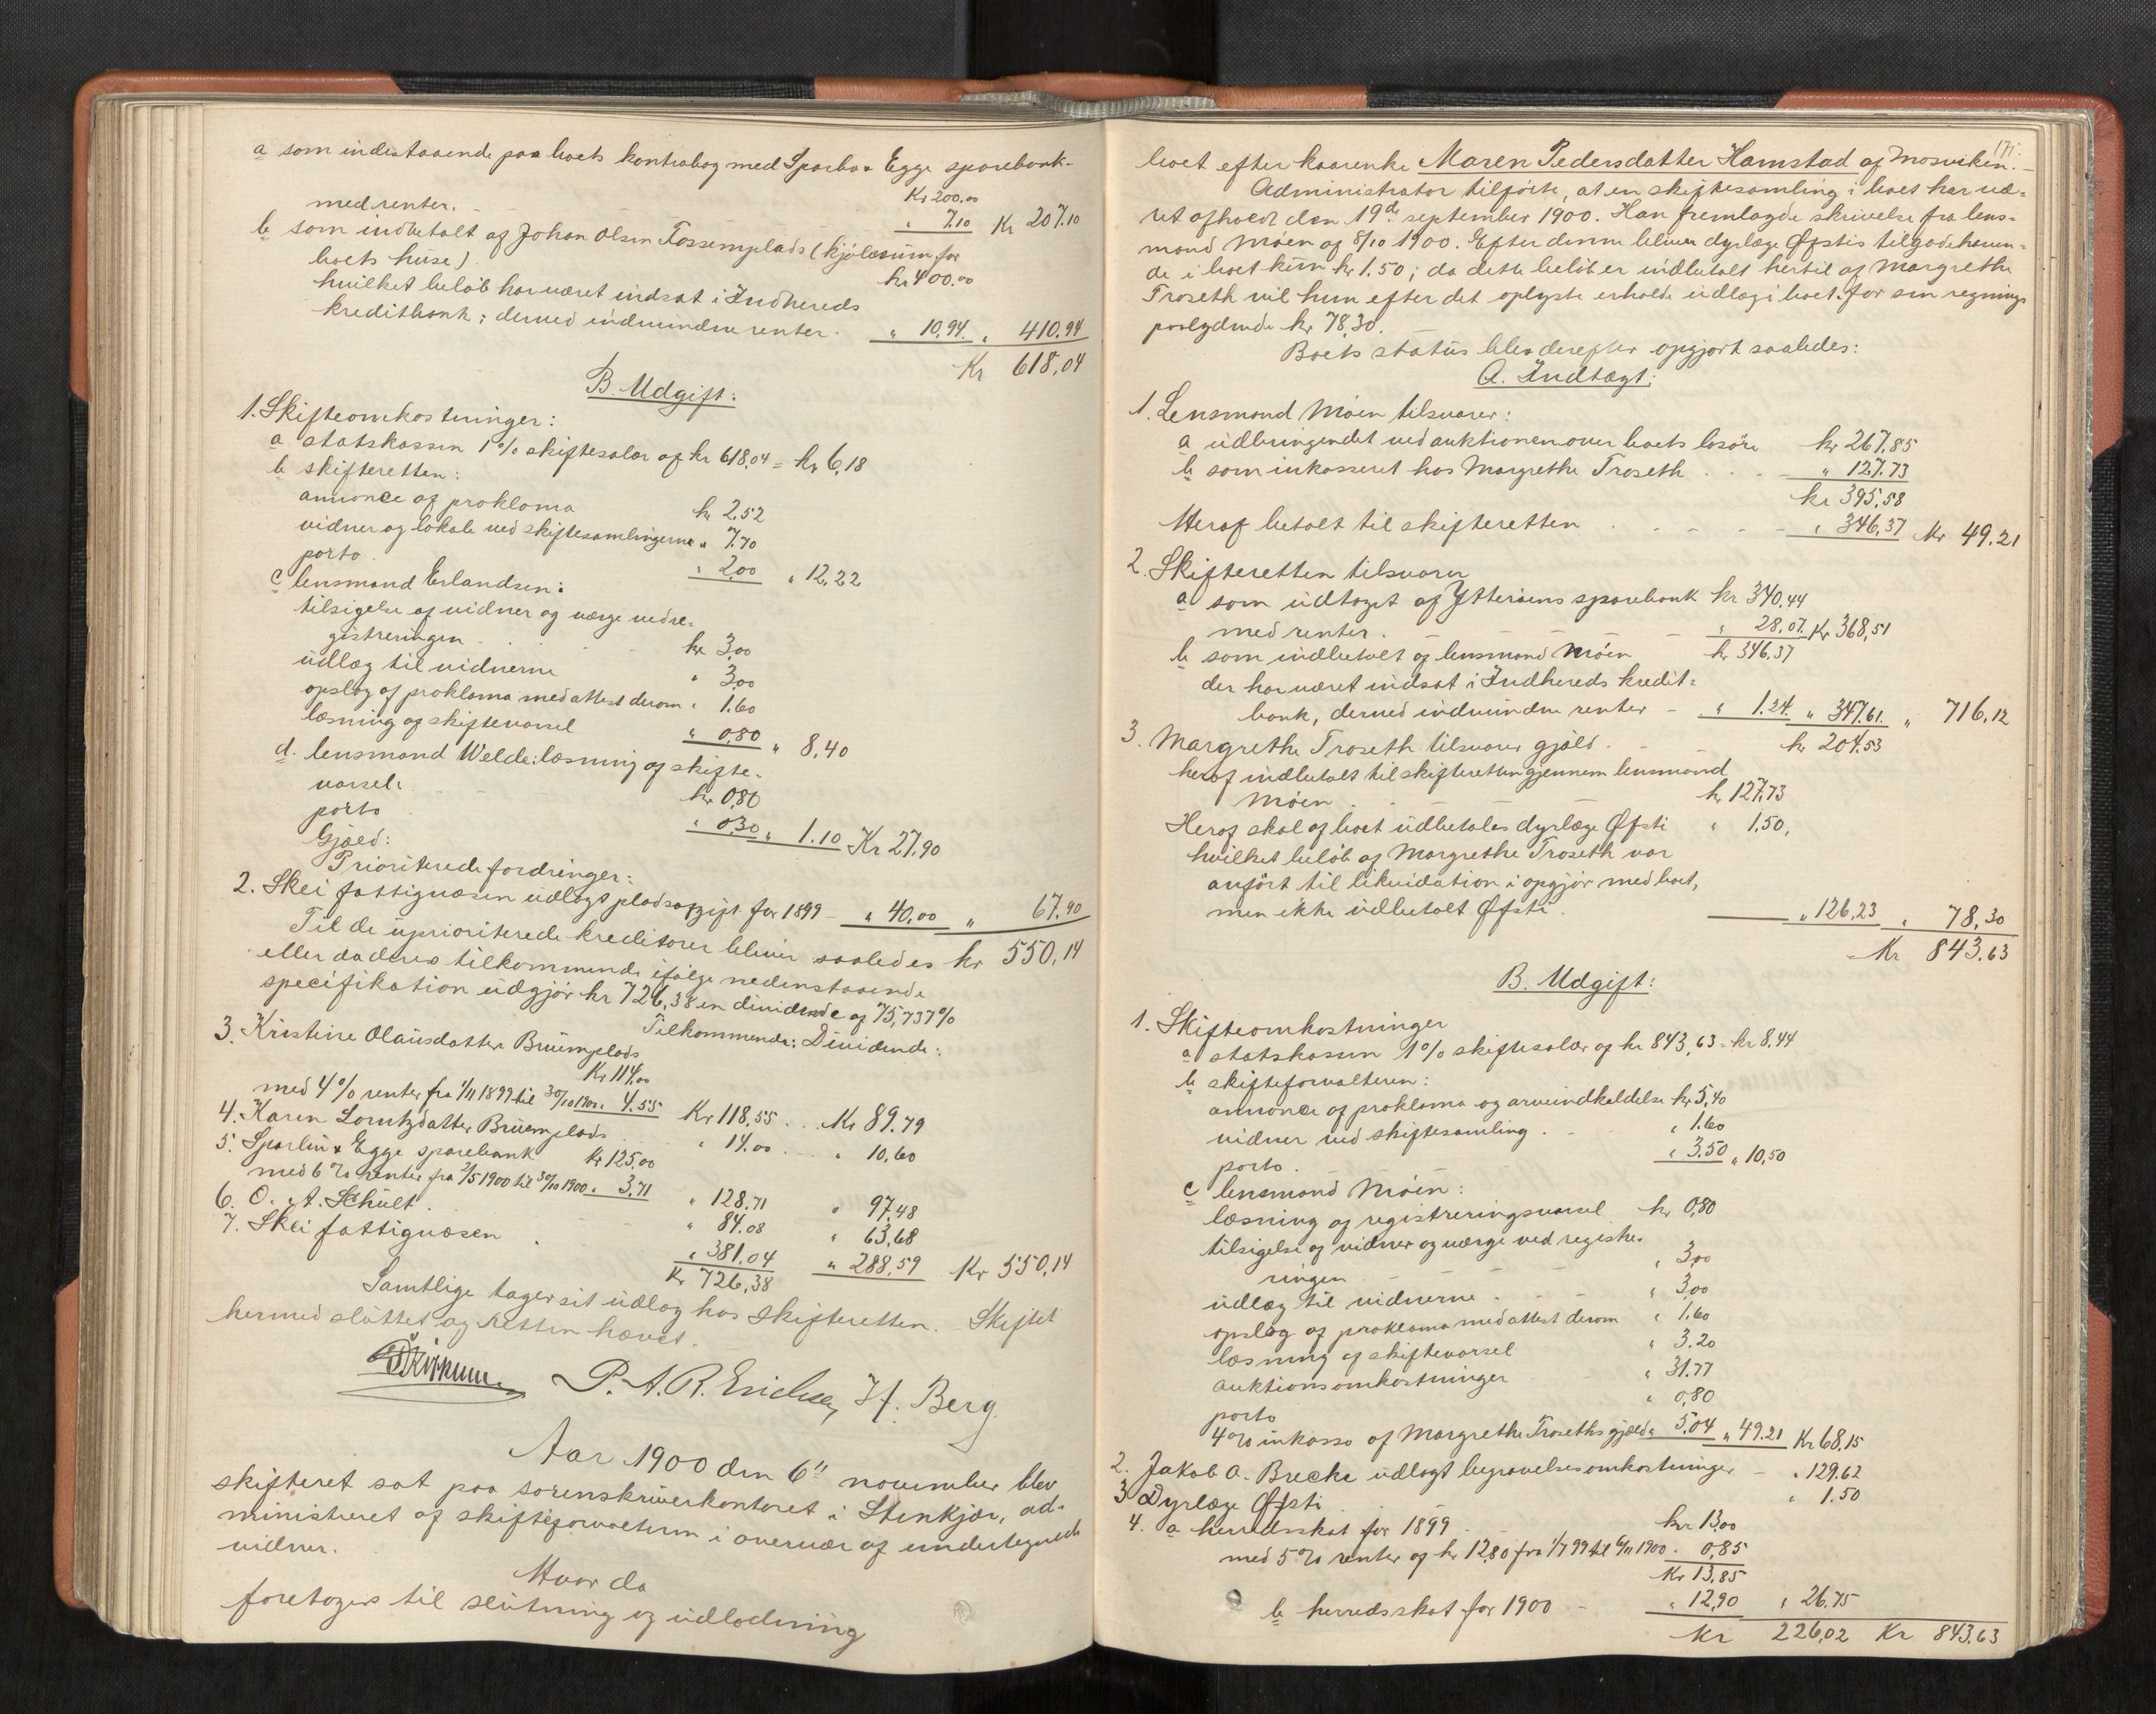 a som indestaaende paa boets kontrabog med Sparbu & Egge sparebank
Kr 200.00
med renter. " 7.10 Kr 207.10
b som indbetalt af Johan Olsen Fossemplads (kjöbesum for
boets huse) kr 400.00
hvilket belöb har været indsat i Indhereds
kreditbank; derved indvundne renter " 10,94. " 410.94
Kr 618,04
B. Udgift:
1. Skifteomkostninger:
a statskassen 1% skiftesalær af kr 618,04 = kr 6,18
b skifteretten:
annonce af proklama kr 2,52
vidner og lokale ved skiftesamlingerne " 7.70
porto. " 2,00 " 12,22
c lensmand Erlandsen:
tilsigelse af vidner og værge ved re-
gistreringen kr 3,00
udlæg til vidnerne " 3,00
opslag af proklama med attest derom " 1.60
læsning af skiftevarsel " 0,80 " 8,40
d. lensmand Welde: læsning af skifte-
varsel: kr 0,80
porto " 0,30 " 1.10 Kr 27.90
Gjæld:
Prioriterede fordringer:
2. Skei fattigvæsen udlagt pladsafgift for 1899 - " 40,00 " 67,90
Til de uprioriterede kreditorer bliver saaledes kr 550,14
eller da deres tilkommende ifölge nedenstaaende
specifikation udgjör kr 726,38 en dividende af 75,737%
Tilkommende: Dividende:
3. Kristine Olausdatter Bruemplads
Kr 114,00
med 4% renter fra 1/11 1899 til 30/10 1900. 4.55 Kr 118,55 ... Kr 89.79
4. Karen Lorntzdatter Bruemplads " 14.00 " 10,60
5. Sparbu & Egge sparebank Kr 125,00
med 6% renter fra 2/5 1900 til 30/10 1900 " 3,71 " 128,71 " 97,48
6. O. A. Schult. " 84.08 " 63,68
7. Skei fattigvæsen " 381,04 " 288,59 Kr 550,14
Kr 726,38
Samtlige tager sit udlæg hos skifteretten. Skiftet
hermed sluttet og retten hævet.
P. A. R. Erichsen H. Berg.
Aar 1900 den 6" november blev
skifteret sat paa sorenskriverkontoret i Stenkjær, ad-
ministreret af skifteforvalteren i overvær af undertegnede
vidner.
Hvor da
foretages til slutning og udlodning
171.
boet efter kaarenke Maren Pedersdatter Hamstad af Mosviken. -
Administrator tilförte, at en skiftesamling i boet har væ-
ret afholdt den 19de september 1900. Han fremlagde skrivelse fra lens-
mand Möen af 8/10 1900. Efter denne bliver dyrlæge Öfstis tilgodehaven-
de i boet kun kr 1.50; da dette belöb er indbetalt hertil af Margrethe
Troseth vil hun efter det oplyste erholde udlæg i boet for sin regning
paalydende kr 78,30.
Boets status blev derefter opgjort saaledes:
A. Indtægt:
1. Lensmand Möen tilsvarer:
a udbringendet ved auktionen over boets lösöre kr 267,85
b som inkasseret hos Margrethe Troseth " 127.73
kr 395,58
Heraf betalt til skifteretten " 346,37 Kr 49.21
2. Skifteretten tilsvarer
a som udtaget af Ytteröens sparebank kr 340,44
med renter. " 28,07. Kr 368,51
b som indbetalt af lensmand Möen kr 346,37
der har været indsat i Indhereds kredit-
bank, derved indvundne renter - " 1.24. " 347,61. " 716,12
3. Margrethe Troseth tilsvarer gjæld. kr 204,53
heraf indbetalt til skifteretten gjennem lensmand
Möen kr 127,73
Heraf skal af boet udbetales dyrlæge Öfsti " 1,50,
hvilket belöb af Margrethe Troseth var
anfört til likvidation i opgjör med boet,
men ikke udbetalt Öfsti. " 126,23 " 78,30
Kr 843,63
B. Udgift:
1. Skifteomkostninger
a statskassen 1% skiftesalær af kr 843,63 = kr 8,44
b skifteforvalteren:
annonce af proklama og arveindkaldelse kr 5,40
vidner ved skiftesamling. " 1.60
porto. " 3.50 " 10,50
c lensmand Möen:
læsning af registreringsvarsel kr 0,80
tilsigelse af vidner og værge ved registre-
ringen " 3,00
udlæg til vidnerne " 3,00
opslag af proklama med attest derom " 1.60
læsning af skiftevarsel " 3.20
auktionsomkostninger " 31.77
porto " 0,80
4% inkasso af Margrethe Troseths gjæld " 5,04 " 49.21 Kr 68,15
2. Jakob A. Brecke udlagt begravelsesomkostninger " 129.62
3 Dyrlæge Öfsti " 1.50
4. a herredsskat for 1899 kr 13,00
med 5% renter af kr 12,80 fra 1/7 99 til 6/11 1900 " 0,85
Kr 13,85
b herredsskat for 1900 - " 12,90 " 26.75
Kr 226,02 Kr 843.63